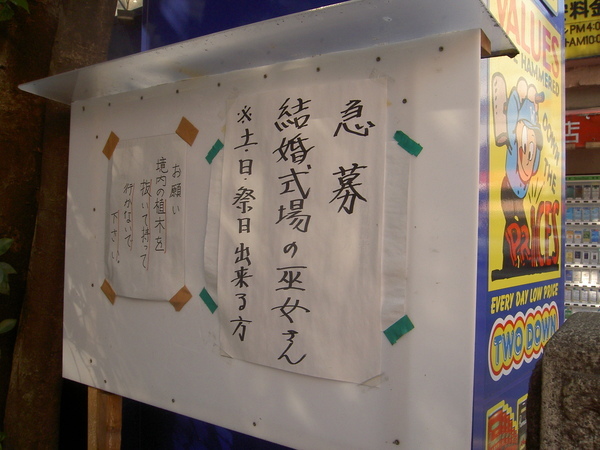 急募
結婚式場の巫女さん
※土・日・祭日出来る方
お願い
境内の植木を
抜いて持って
行かないで
下さい。
VALUES
HAMMERED
DOWN
THE
PRICES
EVERY DAY LOW PRICE
TWO DOWN
料金
PM4:0
AM10:0
店